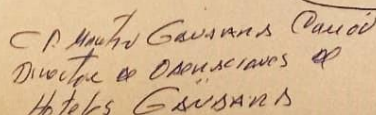 C.P. Martin Gaudard Camou
Director de Operaciones de
Hoteles Gandara